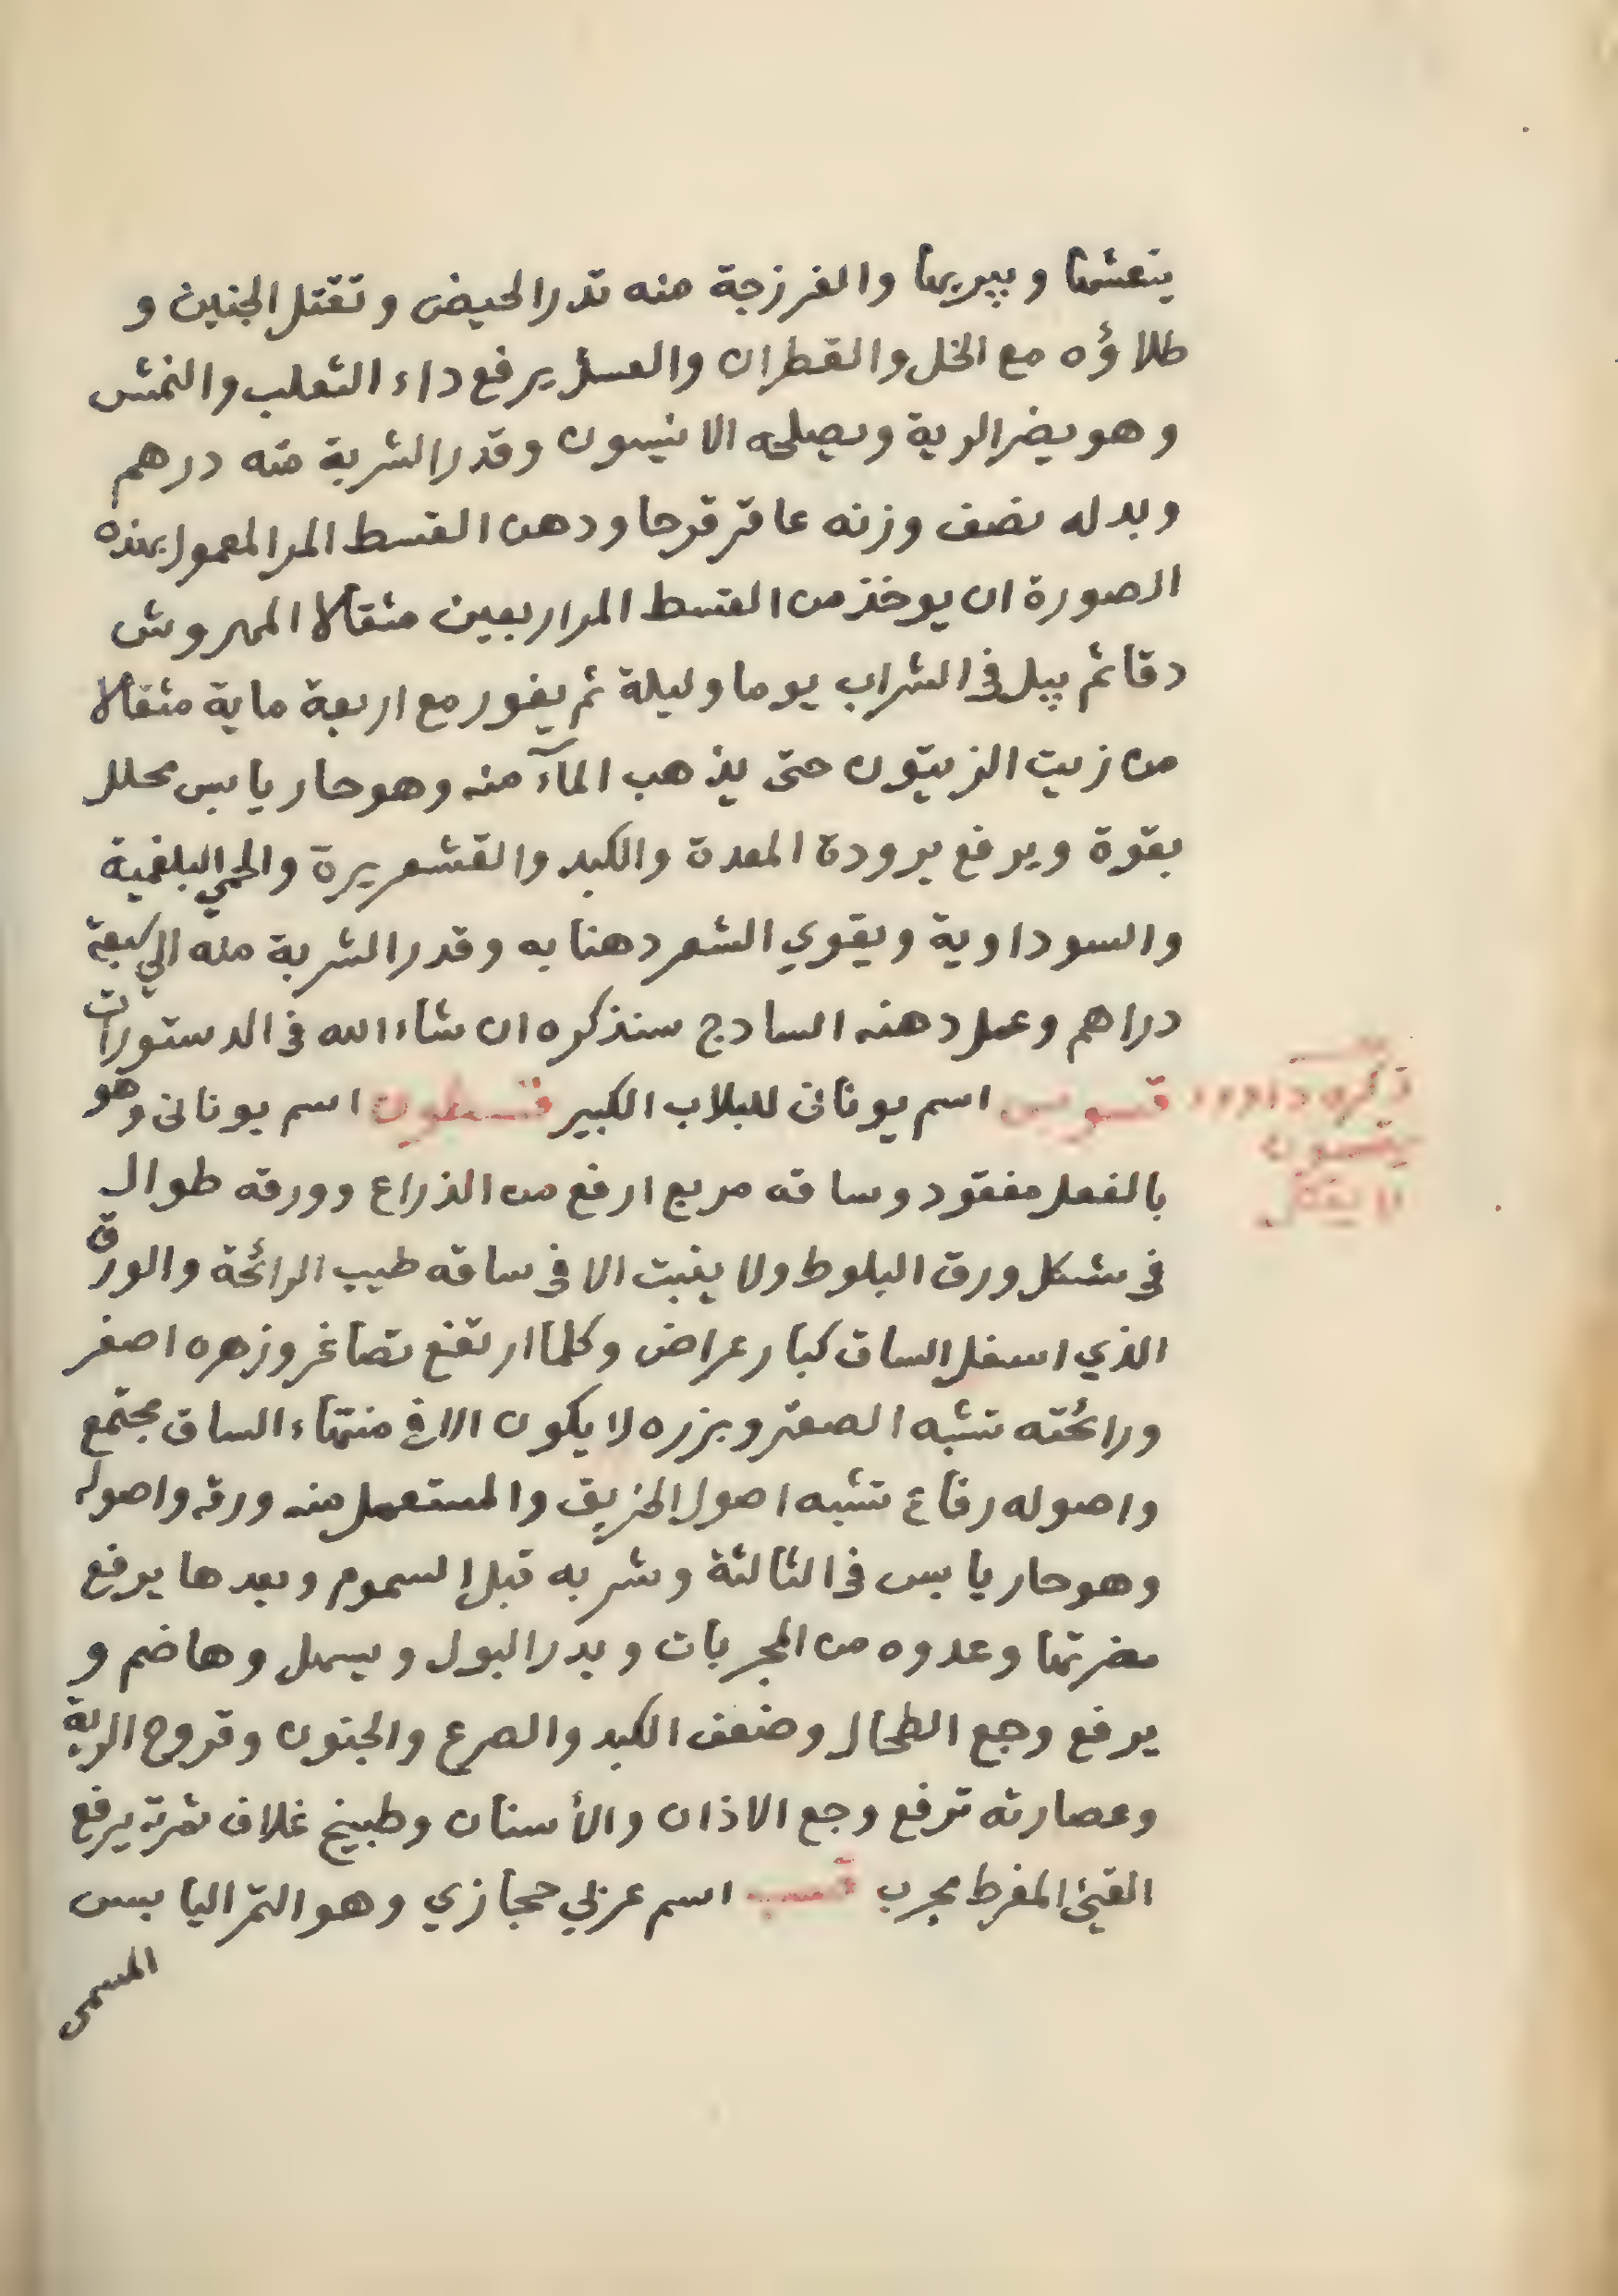 ينعشها ويبريها والفرزجة منه تدر الحيض وتقتل الجنين و
طلاؤه مع الخل والقطران والعسل يرفع داء الثعلب والنمش
وهو يضر الرية ويصلحه الانيسون وقدر الشربة منه درهم
وبدله نصف وزنه عاقر قرحا ودهن القسط المر المعمول بهذه
الصورة ان يوخذ من القسط المر اربعين مثقالا المهروش
دقا ثم يبل في الشراب يوما وليلة ثم يفور مع اربعة ماية مثقالا
من زيت الزيتون حتى يذهب المآء منه وهو حار يابس محلل
بقوة ويرفع برودة المعدة والكبد والقشعريرة والحمي البلغمية
والسوداوية ويقوي الشعر دهنا به وقدر الشربة منه الي سبعة
دراهم وعمل دهنه السادج سنذكره ان شاء الله في الدستورات
قسوس اسم يوناني للبلاب الكبير قسطرون اسم يوناني وهو
بالفعل مفقود وساقه مربع ارفع من الذراع وورقه طوال
في شكل ورق البلوط ولا ينبت الا في ساقه طيب الرائحة والورق
الذي اسفل الساق كبار عراض وكلما ارتفع تصاغر وزهره اصفر
ورائحته تشبه الصعتر وبزره لا يكون الا في منتهاء الساق مجتمع
واصوله رقاع تشبه اصول الخزيق والمستعمل منه ورقه واصوله
وهو حار يابس في الثالثة وشربه قبل السموم وبعدها يرفع
مضرتها وعدوه من المجربات ويدر البول ويسهل وهاضم و
يرفع وجع الطحال وضعف الكبد والصرع والجنون وقروح الرية
وعصارته ترفع وجع الاذان والأسنان وطبيخ غلاف ثمرته يرفع
القيئ المفرط مجرب قسب اسم عربي حجازي وهو التمر اليابس
المسمى
ذكره داوود